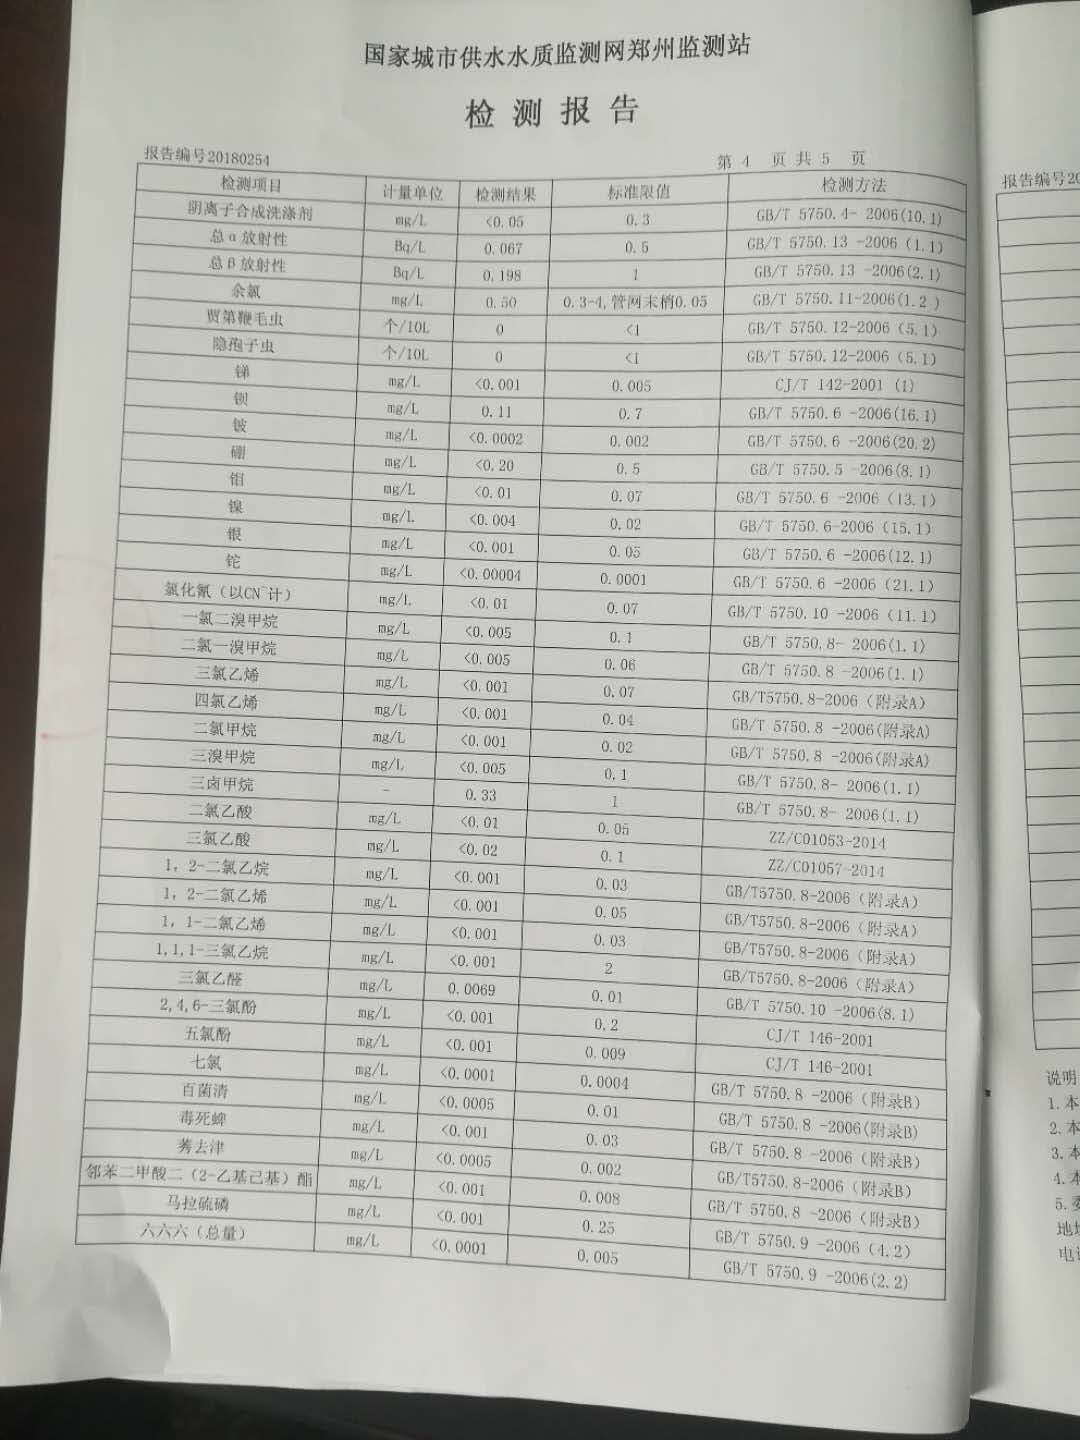 国家城市供水水质监测网郑州监测站
检测报告
报告编号20180254 第 4 页 共 5 页
检测项目 计量单位 检测结果 标准限值 检测方法
阴离子合成洗涤剂 mg/L <0.05 0.3 GB/T 5750.4- 2006(10.1)
总α放射性 Bq/L 0.067 0.5 GB/T 5750.13 -2006 (1.1)
总β放射性 Bq/L 0.198 1 GB/T 5750.13 -2006(2.1)
余氯 mg/L 0.50 0.3-4,管网末梢0.05 GB/T 5750.11-2006(1.2 )
贾第鞭毛虫 个/10L 0 <1 GB/T 5750.12-2006 (5.1)
隐孢子虫 个/10L 0 <1 GB/T 5750.12-2006 (5.1)
锑 mg/L <0.001 0.005 CJ/T 142-2001 (1)
钡 mg/L 0.11 0.7 GB/T 5750.6 -2006(16.1)
铍 mg/L <0.0002 0.002 GB/T 5750.6 -2006(20.2)
硼 mg/L <0.20 0.5 GB/T 5750.5 -2006(8.1)
钼 mg/L <0.01 0.07 GB/T 5750.6 -2006 (13.1)
镍 mg/L <0.004 0.02 GB/T 5750.6-2006 (15.1)
银 mg/L <0.001 0.05 GB/T 5750.6 -2006(12.1)
铊 mg/L <0.00004 0.0001 GB/T 5750.6 -2006 (21.1)
氯化氰（以CN⁻计） mg/L <0.01 0.07 GB/T 5750.10 -2006 (11.1)
一氯二溴甲烷 mg/L <0.005 0.1 GB/T 5750.8- 2006(1.1)
二氯一溴甲烷 mg/L <0.005 0.06 GB/T 5750.8 -2006(1.1)
三氯乙烯 mg/L <0.001 0.07 GB/T5750.8-2006（附录A）
四氯乙烯 mg/L <0.001 0.04 GB/T 5750.8 -2006(附录A)
二氯甲烷 mg/L <0.001 0.02 GB/T 5750.8 -2006(附录A)
三溴甲烷 mg/L <0.005 0.1 GB/T 5750.8- 2006(1.1)
三卤甲烷 - 0.33 1 GB/T 5750.8- 2006(1.1)
二氯乙酸 mg/L <0.01 0.05 ZZ/C01053-2014
三氯乙酸 mg/L <0.02 0.1 ZZ/C01057-2014
1, 2-二氯乙烷 mg/L <0.001 0.03 GB/T5750.8-2006（附录A）
1, 2-二氯乙烯 mg/L <0.001 0.05 GB/T5750.8-2006（附录A）
1, 1-二氯乙烯 mg/L <0.001 0.03 GB/T5750.8-2006（附录A）
1,1,1-三氯乙烷 mg/L <0.001 2 GB/T5750.8-2006（附录A）
三氯乙醛 mg/L 0.0069 0.01 GB/T 5750.10 -2006(8.1)
2,4,6-三氯酚 mg/L <0.001 0.2 CJ/T 146-2001
五氯酚 mg/L <0.001 0.009 CJ/T 146-2001
七氯 mg/L <0.0001 0.0004 GB/T 5750.8 -2006（附录B）
百菌清 mg/L <0.0005 0.01 GB/T 5750.8 -2006(附录B)
毒死蜱 mg/L <0.001 0.03 GB/T 5750.8 -2006（附录B）
莠去津 mg/L <0.0005 0.002 GB/T5750.8-2006（附录B）
邻苯二甲酸二（2-乙基己基）酯 mg/L <0.001 0.008 GB/T 5750.8 -2006（附录B）
马拉硫磷 mg/L <0.001 0.25 GB/T 5750.9 -2006 (4.2)
六六六（总量） mg/L <0.0001 0.005 GB/T 5750.9 -2006(2.2)
报告编号20
说明
1.本
2.本
3.本
4.本
5.委
地址
电话